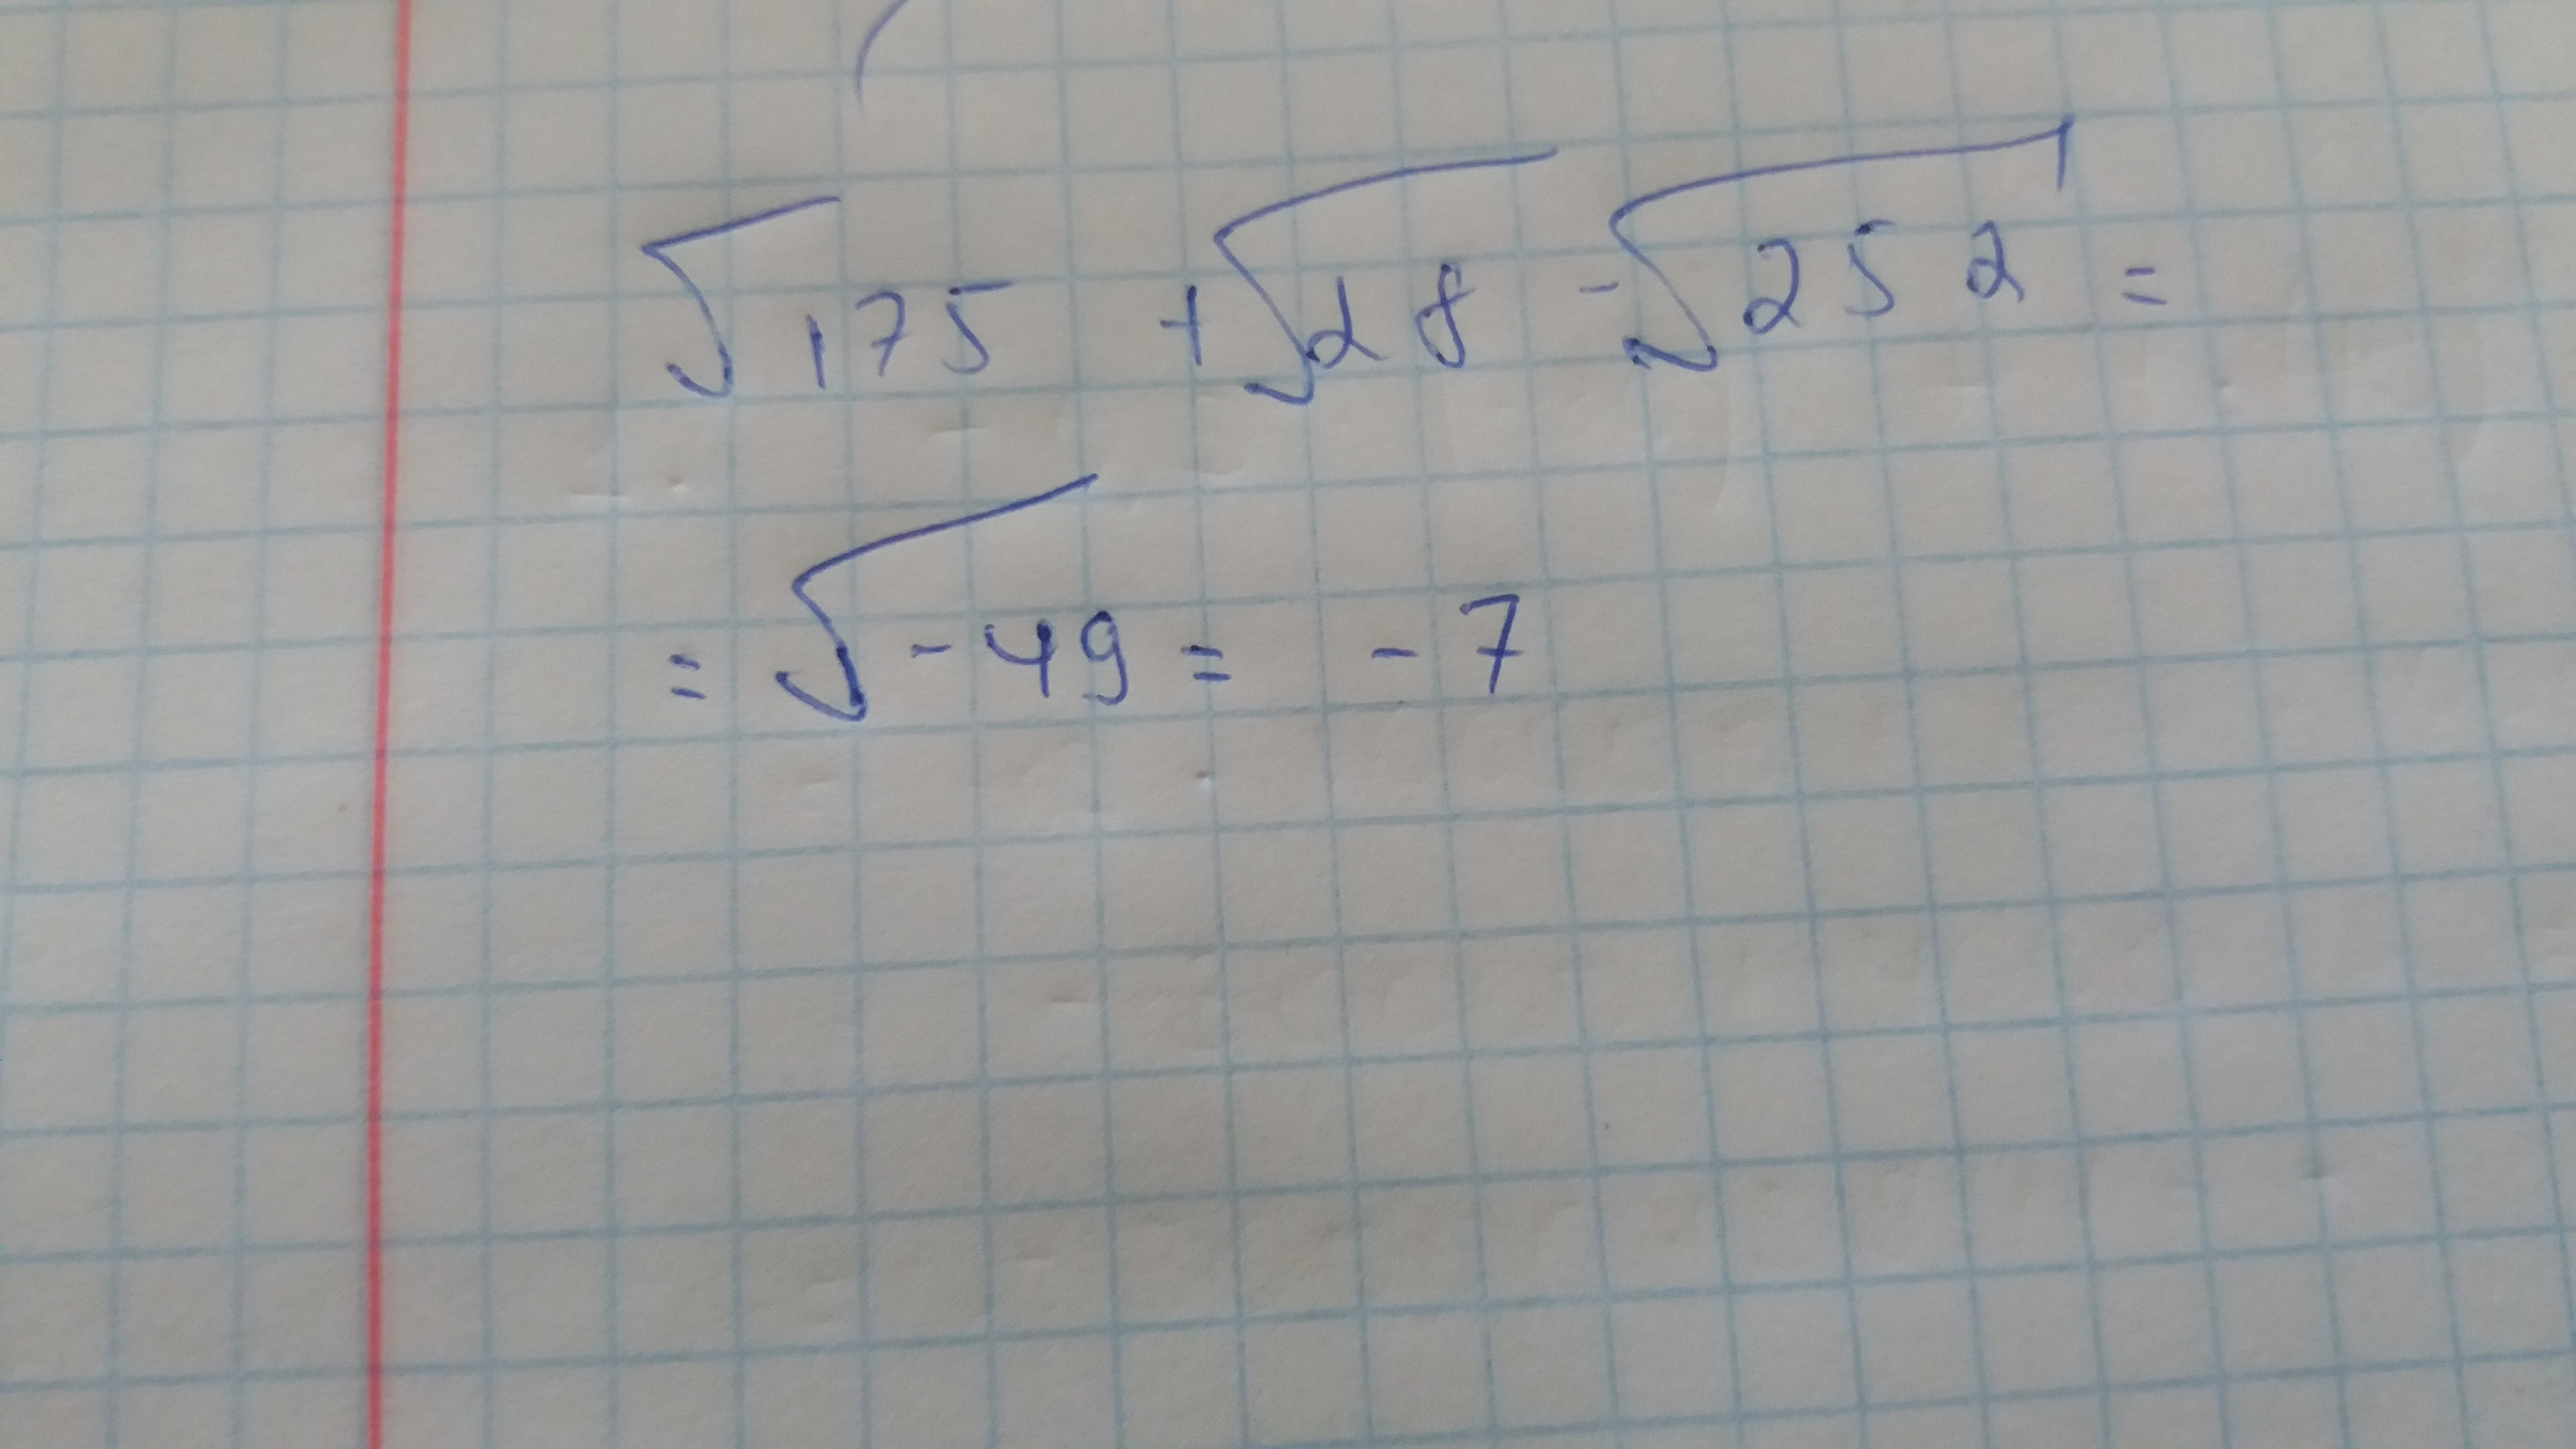 √175 + √28 - √252 =
= √-49 = -7